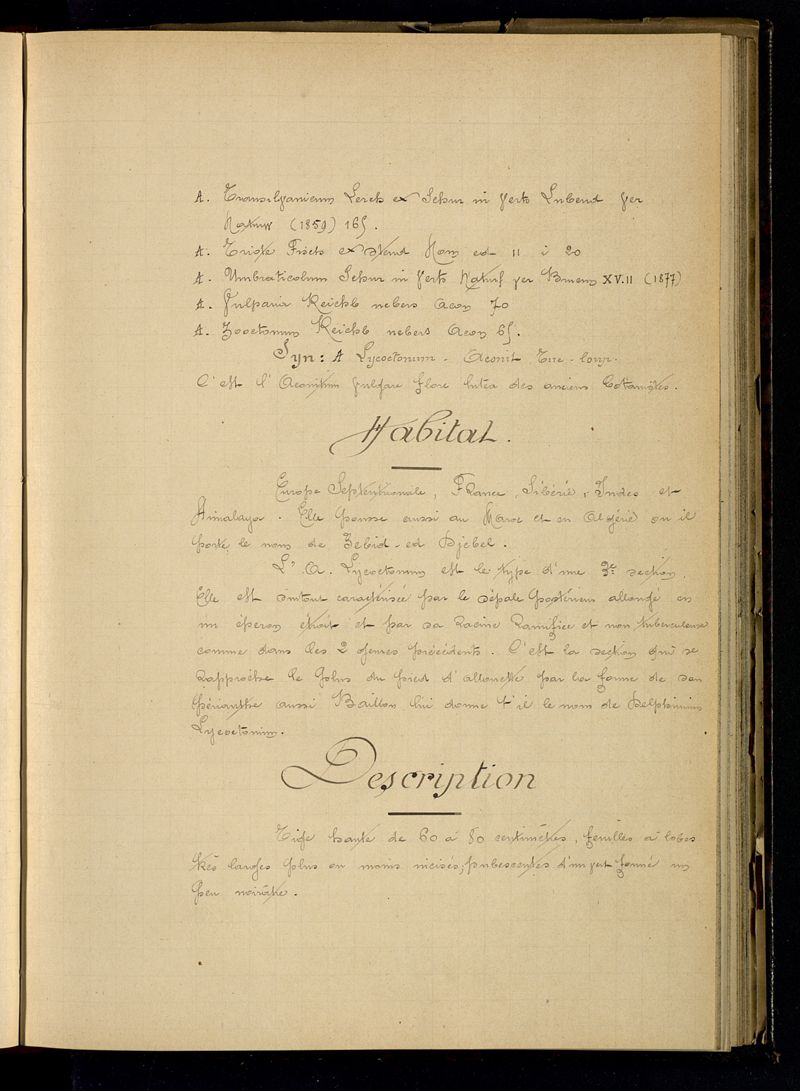 A. Transilvanicum Lerch ex Schur in Verh
(1859) 165.
A. Triste Fisch ex ed II i 20
A. Umbraticolum Schur in Verh Naturf ver Brunn XV.II (1877)
A. Vulparia Reichb uebers Acon 70
A. Zooctonum Reichb uebers Acon 65.
Syn: A Lycoctonum - Aconit Tue-loup.
C'est l'Aconitum vulgare flore lutea des anciens botanistes.
Habitat.
Europe Septentrionale, France, Sibérie, Indes et
Himalaya. Elle pousse aussi au Maroc et en Algérie ou il
porte le nom de Zebid-ed Djebel.
L'A. Lycoctonum est le type d'une 3e section.
Elle est surtout caractérisée par le sépale postérieur allongé en
un éperon étroit et par sa Racine Ramifiée et non tuberculeuse
comme dans les 2 genres précédents. C'est la section qui se
rapproche le plus du pied d'allouette par la forme de son
périanthe aussi Baillon lui donne t'il le nom de Delphinium
Lycoctonum.
Description
Tige haute de 60 à 80 centimètres, feuilles à lobes
très larges plus ou moins incisés, pubescentes d'un vert foncé un
peu noirâtre.